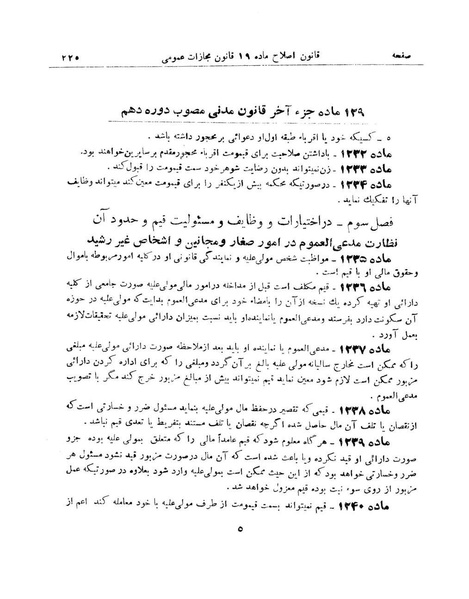 صفحه قانون اصلاح ماده ۱۹ قانون مجازات عمومی ۲۲۵
۱۲۹ ماده جزء آخر قانون مدنی مصوب دوره دهم
۵ ـ کسیکه خود یا اقرباء طبقه اول او دعوائی بر محجور داشته باشد .
ماده ۱۲۳۲ ـ باداشتن صلاحیت برای قیمومت اقرباء محجور مقدم بر سایرین خواهند بود.
ماده ۱۲۳۳ ـ زن نمیتواند بدون رضایت شوهر خود سمت قیمومت را قبول کند .
ماده ۱۲۳۴ ـ در صورتیکه محکمه بیش از یکنفر را برای قیمومت معین کند میتواند وظایف
آنها را تفکیک نماید .
فصل سوم ـ در اختیارات و وظایف و مسئولیت قیم و حدود آن
نظارت مدعی‌العموم در امور صغار و مجانین و اشخاص غیر رشید
ماده ۱۲۳۵ ـ مواظبت شخص مولی‌علیه و نمایندگی قانونی او در کلیه امور مربوطه باموال
وحقوق مالی او با قیم است .
ماده ۱۲۳۶ ـ قیم مکلف است قبل از مداخله در امور مالی مولی‌علیه صورت جامعی از کلیه
دارائی او تهیه کرده یک نسخه از آن را بامضاء خود برای مدعی‌العموم بدایت که مولی‌علیه در حوزه
آن سکونت دارد بفرستد ومدعی‌العموم یانماینده او باید نسبت بمیزان دارائی مولی‌علیه تحقیقات لازمه
بعمل آورد .
ماده ۱۲۳۷ ـ مدعی‌العموم یا نماینده او باید بعد از ملاحظه صورت دارائی مولی‌علیه مبلغی
را که ممکن است مخارج سالیانه مولی‌علیه بالغ بر آن گردد ومبلغی را که برای اداره کردن دارائی
مزبور ممکن است لازم شود معین نماید قیم نمیتواند بیش از مبالغ مزبور خرج کند مگر با تصویب
مدعی‌العموم .
ماده ۱۲۳۸ ـ قیمی که تقصیر در حفظ مال مولی‌علیه بنماید مسئول ضرر و خسارتی است که
از نقصان یا تلف آن مال حاصل شده اگرچه نقصان یا تلف مستند بتفریط یا تعدی قیم نباشد .
ماده ۱۲۳۹ ـ هر گاه معلوم شود که قیم عامداً مالی را که متعلق بمولی علیه بوده جزو
صورت دارائی او قید نکرده ویا باعث شده است که آن مال در صورت مزبور قید نشود مسئول هر
ضرر وخسارتی خواهد بود که از این حیث ممکن است بمولی‌علیه وارد شود بعلاوه در صورتیکه عمل
مزبور از روی سوء نیت بوده قیم معزول خواهد شد .
ماده ۱۲۴۰ ـ قیم نمیتواند بسمت قیمومت از طرف مولی‌علیه با خود معامله کند اعم از
۵